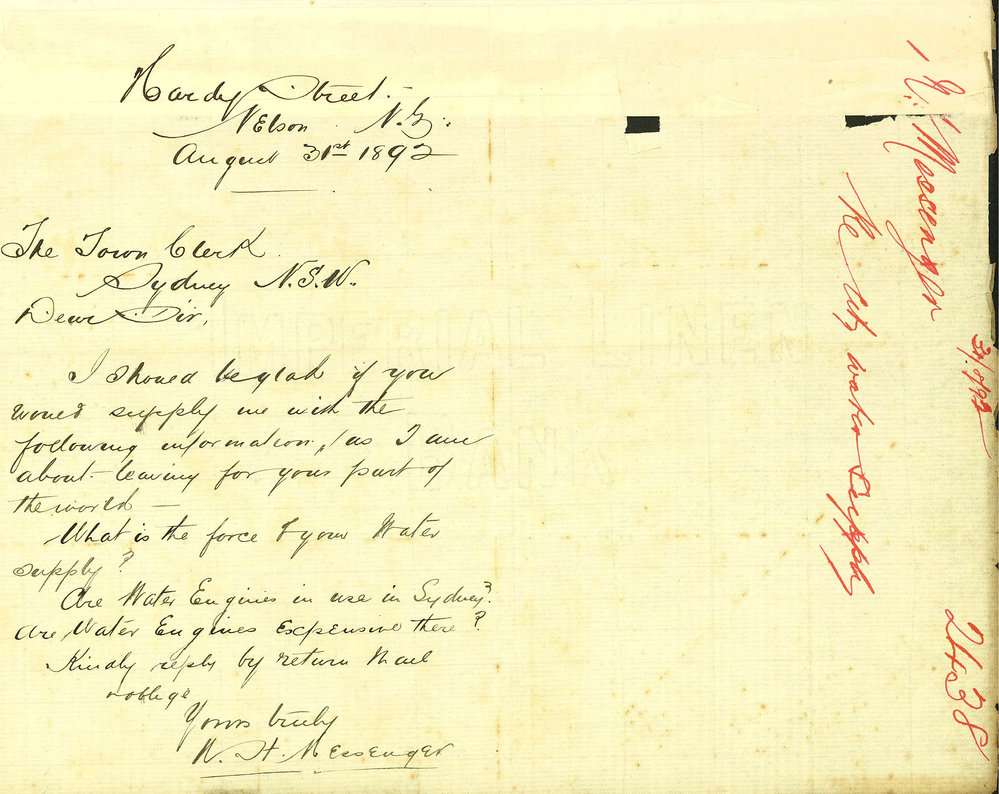 Hardy Street.
Nelson. N.Z.
August 31st 1892
The Town Clerk
Sydney N.S.W.
Dear Sir,
I should be glad if you
would supply me with the
following information, as I am
about leaving for your part of
the world —
What is the force of your Water
supply?
Are Water Engines in use in Sydney?
Are Water Engines Expensive there?
Kindly reply by return Mail
& oblige
Yours truly
W. H. Messenger
Messenger
31/8/92
Re water supply
2438